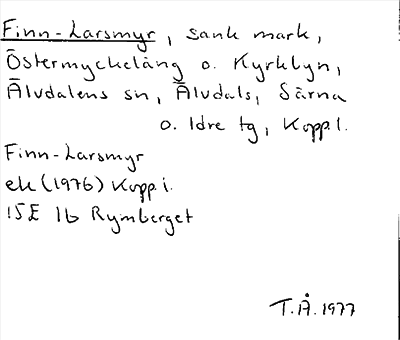 Finn-Larsmyr, sank mark,
Östermyckeläng o. Kyrkbyn,
Älvdalens sn, Älvdals, Särna
o. Idre tg, Kopp.l.
Finn-Larsmyr
ek (1976) Kopp.l.
15E 1b Rymberget
T.Å. 1977